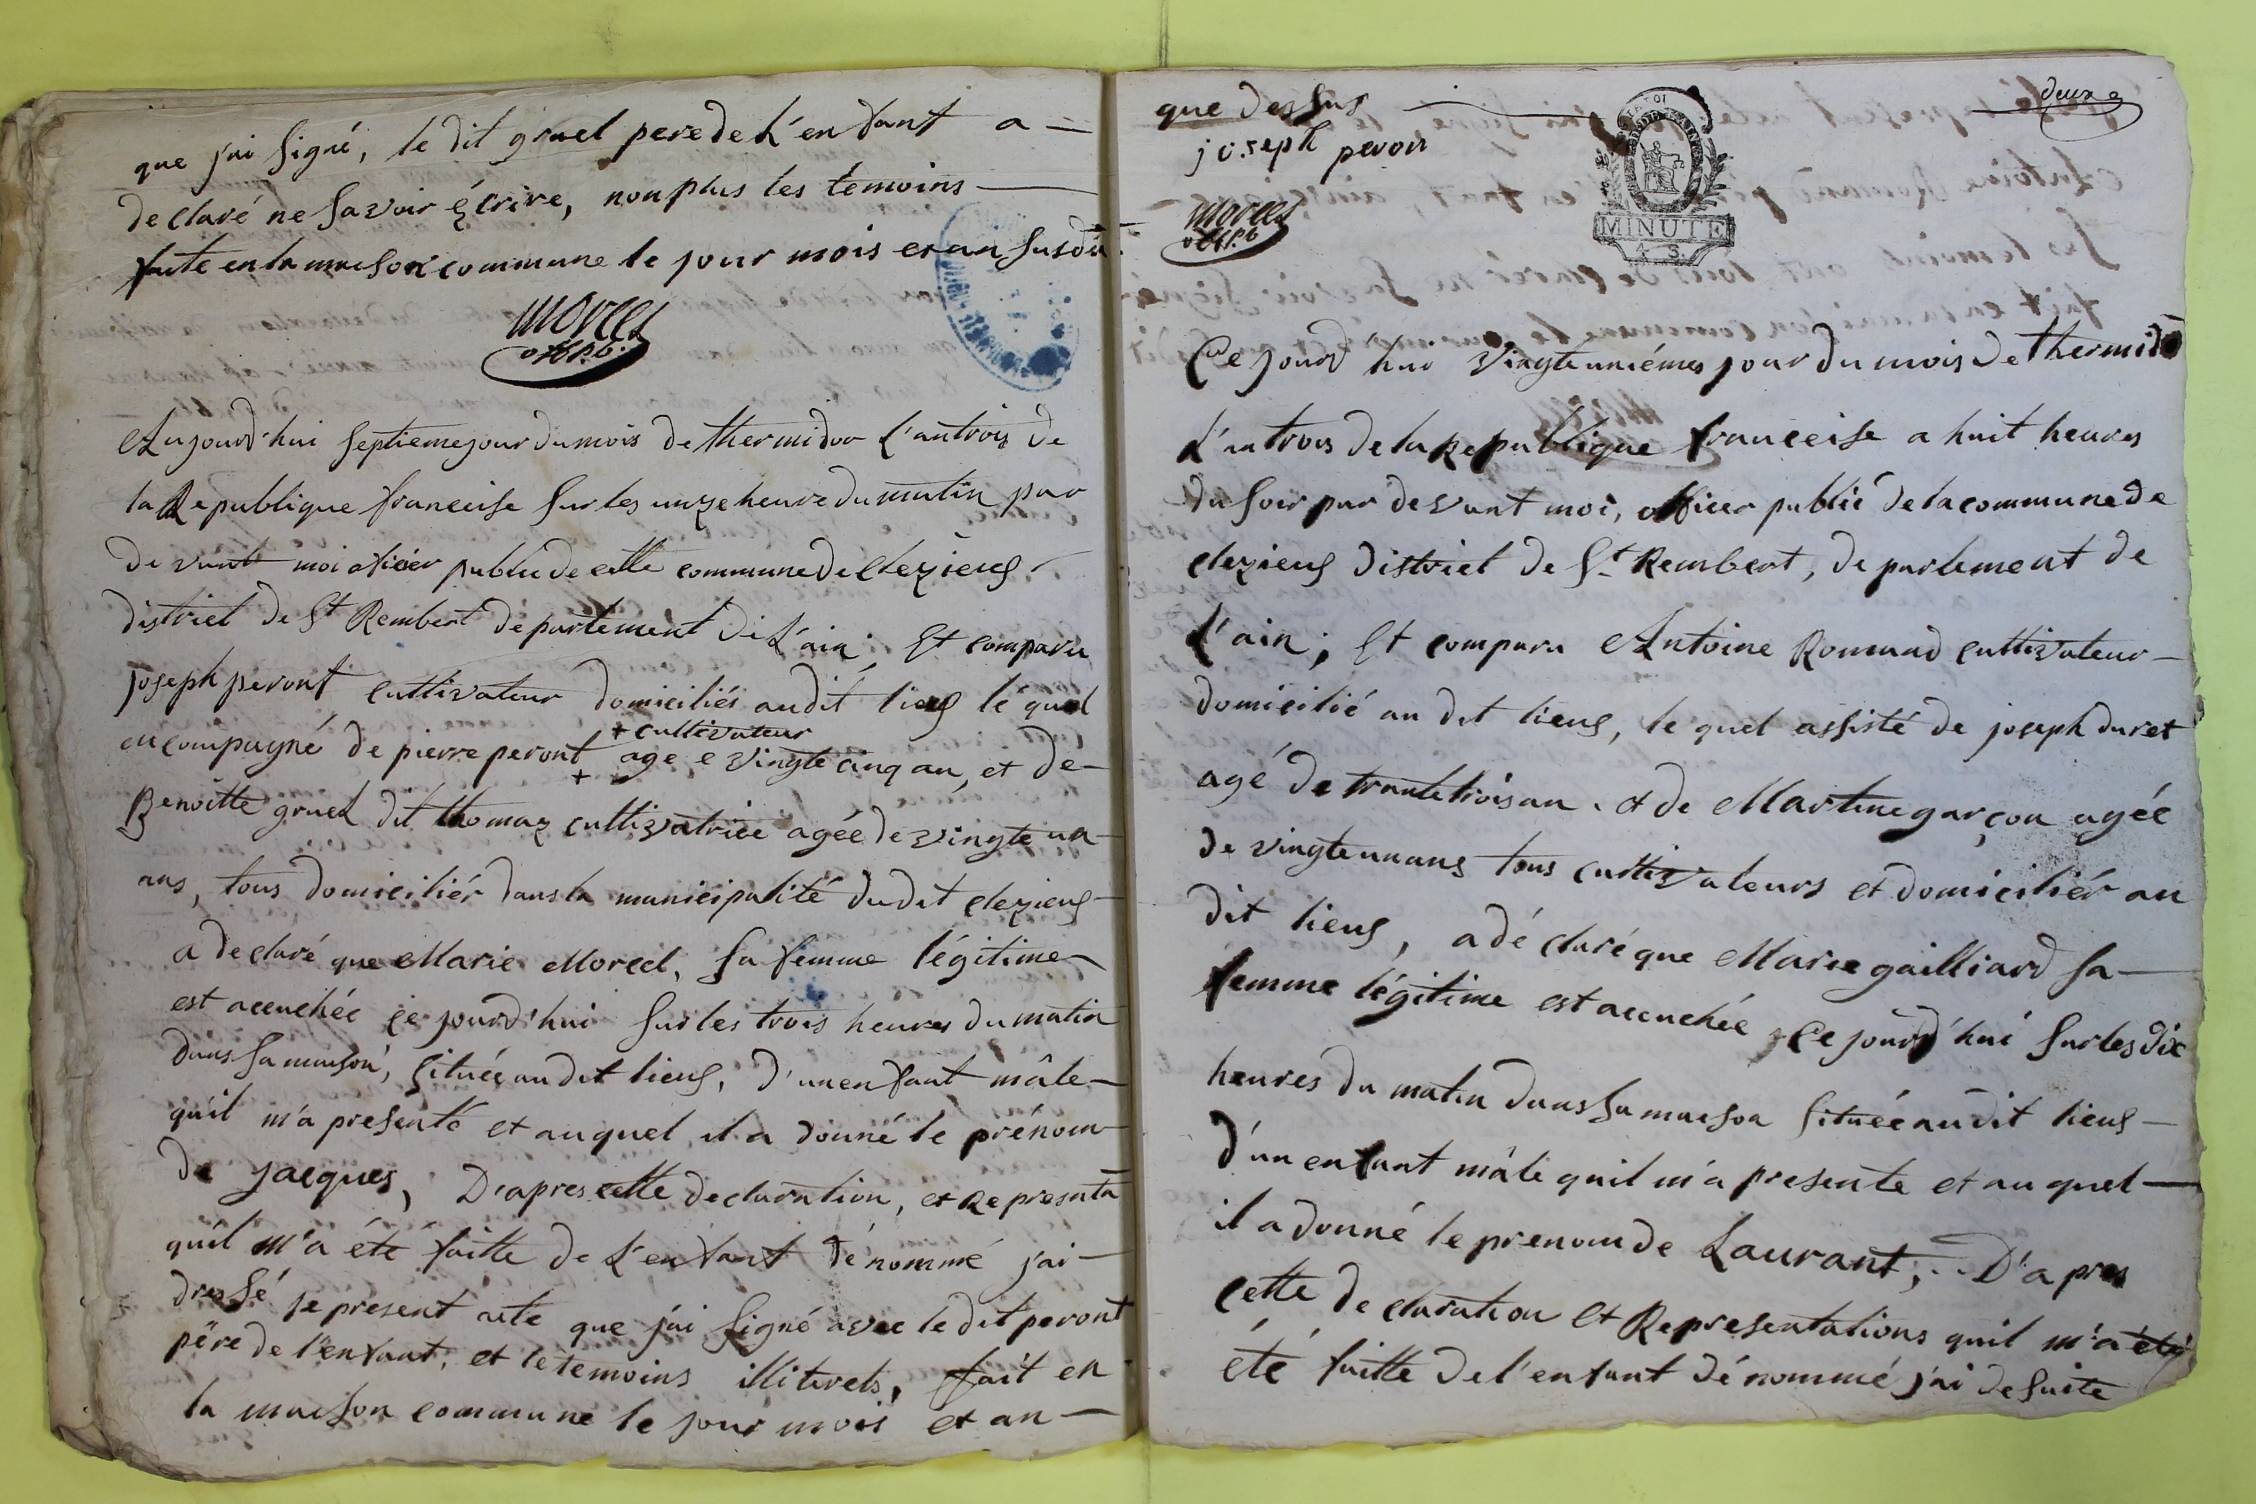 que j'ai signé, le dit gruel pere de L'enfant a —
declaré ne savoir écrire, non plus les temoins —
faite en la maison commune le jour mois et an susdit.
Morel
off. p.b.
Aujourd'hui septieme jour du mois de thermidor L'an trois de
la Republique franceise sur les unze heure du matin par
devant moi oficier public de cette commune de Clezieus
district de St Rembert departement de L'ain, Est comparu
joseph peront cultivateur domiciliés audit lieus le quel
+ cultivateur
accompagné de pierre peront + age e vingte cinq an, et de —
Benoitte gruel dit thomaz cultivatrice agée de vingte un —
ans, tous domiciliér dans la municipalité dudit Clezieus —
a declaré que Marie Morel, sa femme légitime
est acceuchée ce jourd'hui sur les trois heures du matin
dans sa maison, située au dit lieus, d'un enfant mâle —
qu'il m'a presenté et auquel il a donné le prénom
de jacques, D'apres cette declaration, et Representa
qu'il m'a été faitte de L'enfant dénommé j'ai —
dressé le present acte que j'ai signé avec le dit peront
père de l'enfant, et le temoins illiterets, fait en
la maison commune le jour mois et an —
deux
que dessus
joseph peron
Morel
off. p.b.
MINUTE
4 S.
Ce jourd'hui vingte uniémes jour du mois de thermido
L'an trois de la Republique franceise a huit heures
du soir par devant moi, officer public de la commune de
Clezieus district de St Rembert, departement de
L'ain; Est comparu Antoine Romand cultivateur —
domicilié au dit lieus, le quel assisté de joseph duret
agé de trante trois an. et de Martine garçon agée
de vingte un ans tous cultivateurs et domiciliér au
dit lieus, a déclaré que Marie gailliard sa —
femme légitime est acceuchée ce jourd'hui sur les dix
heures du matin dans sa maison située audit lieus —
d'un enfant mâle qu'il m'a presente et au quel —
il a donné le prenom de Laurant, D'apres
cette declaration et Representations qu'il m'a été
été faitte de l'enfant dénommé j'ai de suite